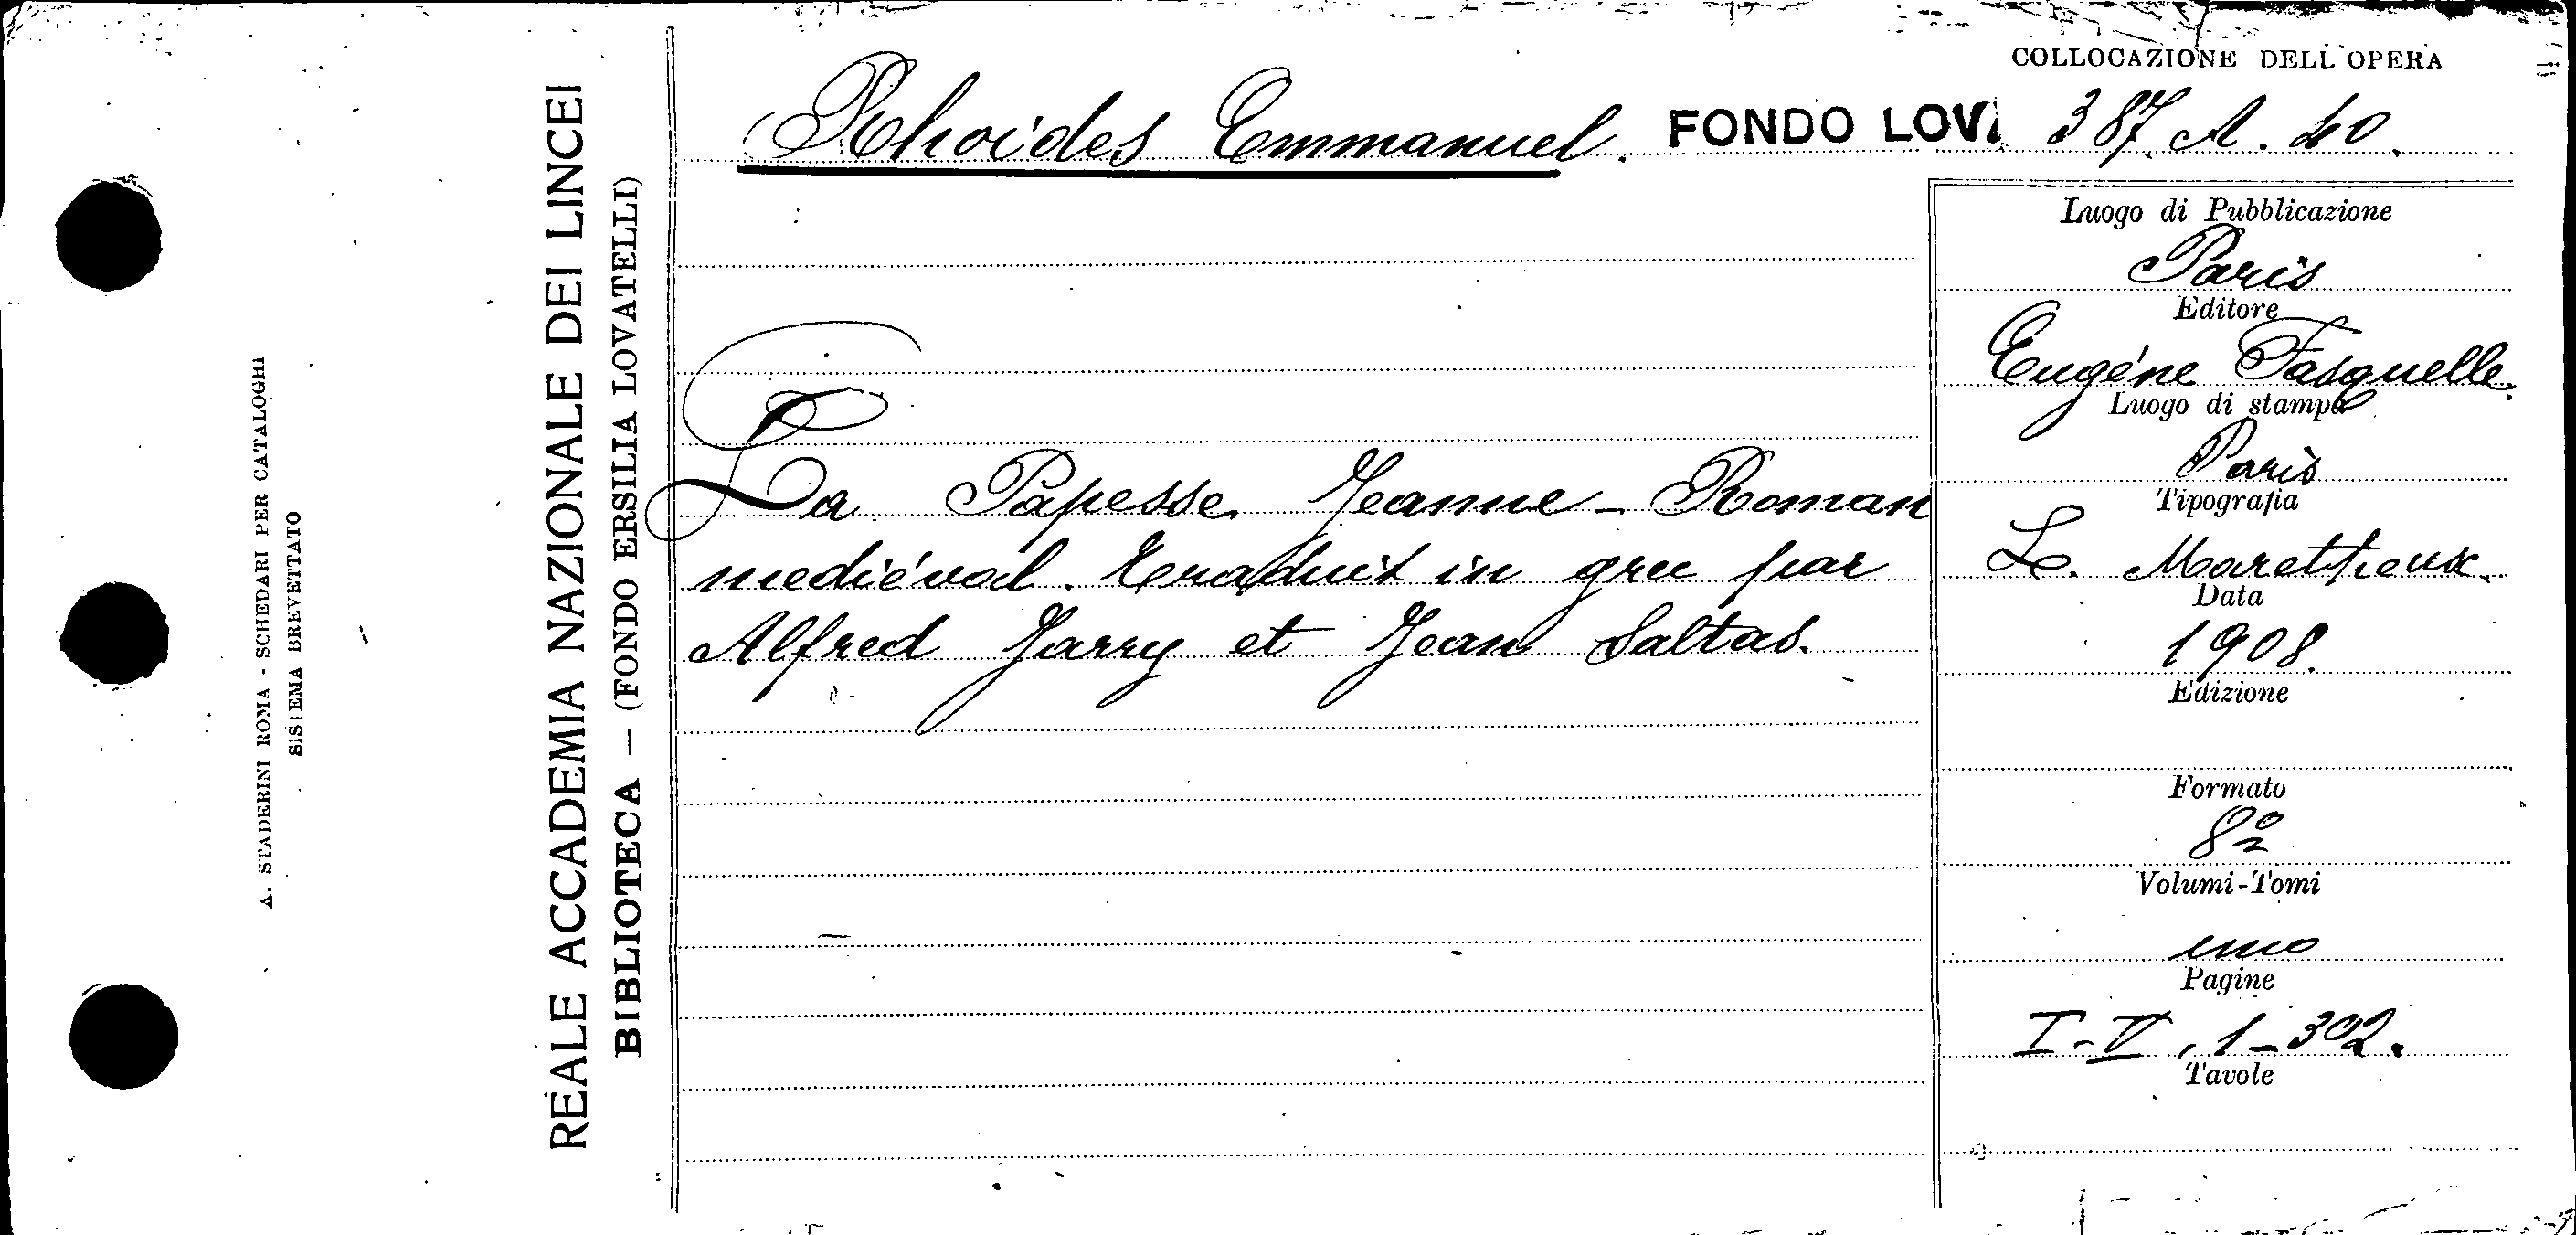 COLLOCAZIONE DELL'OPERA
Rhoides Emmanuel. FONDO LOV. 387. A. 40.
REALE ACCADEMIA NAZIONALE DEI LINCEI
BIBLIOTECA — (FONDO ERSILIA LOVATELLI)
A. STADERINI ROMA - SCHEDARI PER CATALOGHI
SISTEMA BREVETTATO
La Papesse Jeanne - Roman
mediéval. Traduit in grec par
Alfred Jarry et Jean Saltas.
Luogo di Pubblicazione
Paris
Editore
Eugéne Fasquelle.
Luogo di stampa
Paris
Tipografia
L. Maretheux.
Data
1908.
Edizione
Formato
8º
Volumi-Tomi
uno
Pagine
I-V, 1-302.
Tavole